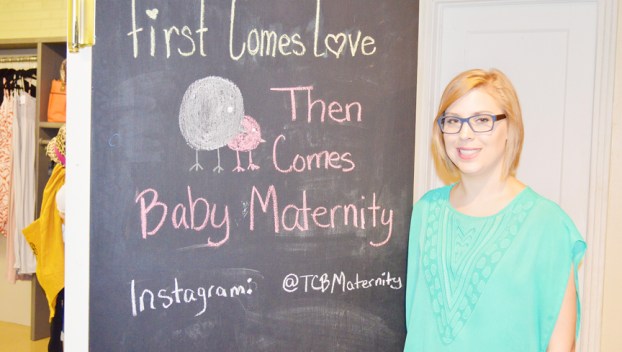 First Comes Love
Then
Comes
Baby Maternity
Instagram: @TCBMaternity